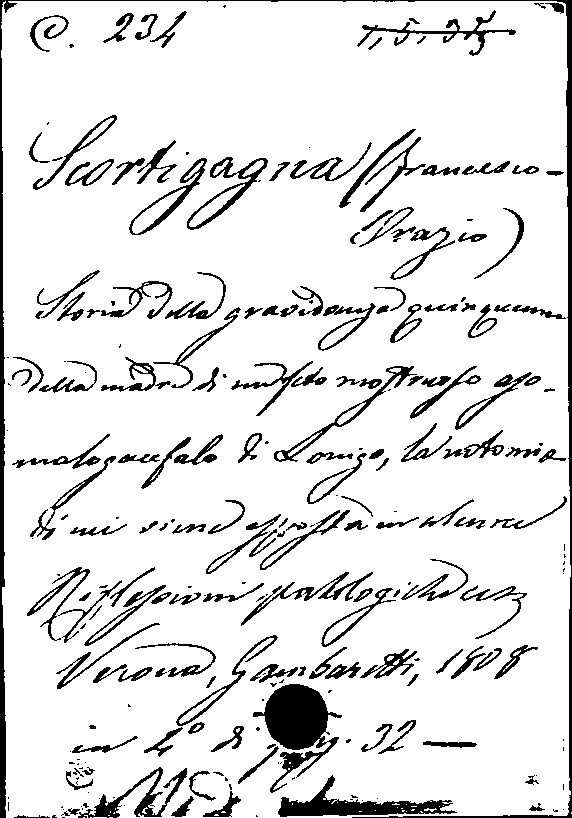 C. 234 1, 5, 3
Scortigagna (Francesco-
Orazio)
Storia della gravidanza quinquenne
della madre di un feto mostruoso
di Lonigo, la notomia
di cui viene esposta in alcune
Riflessioni patologiche ecc
Verona, Gambaretti, 1808
in 4º di pag. 32 —